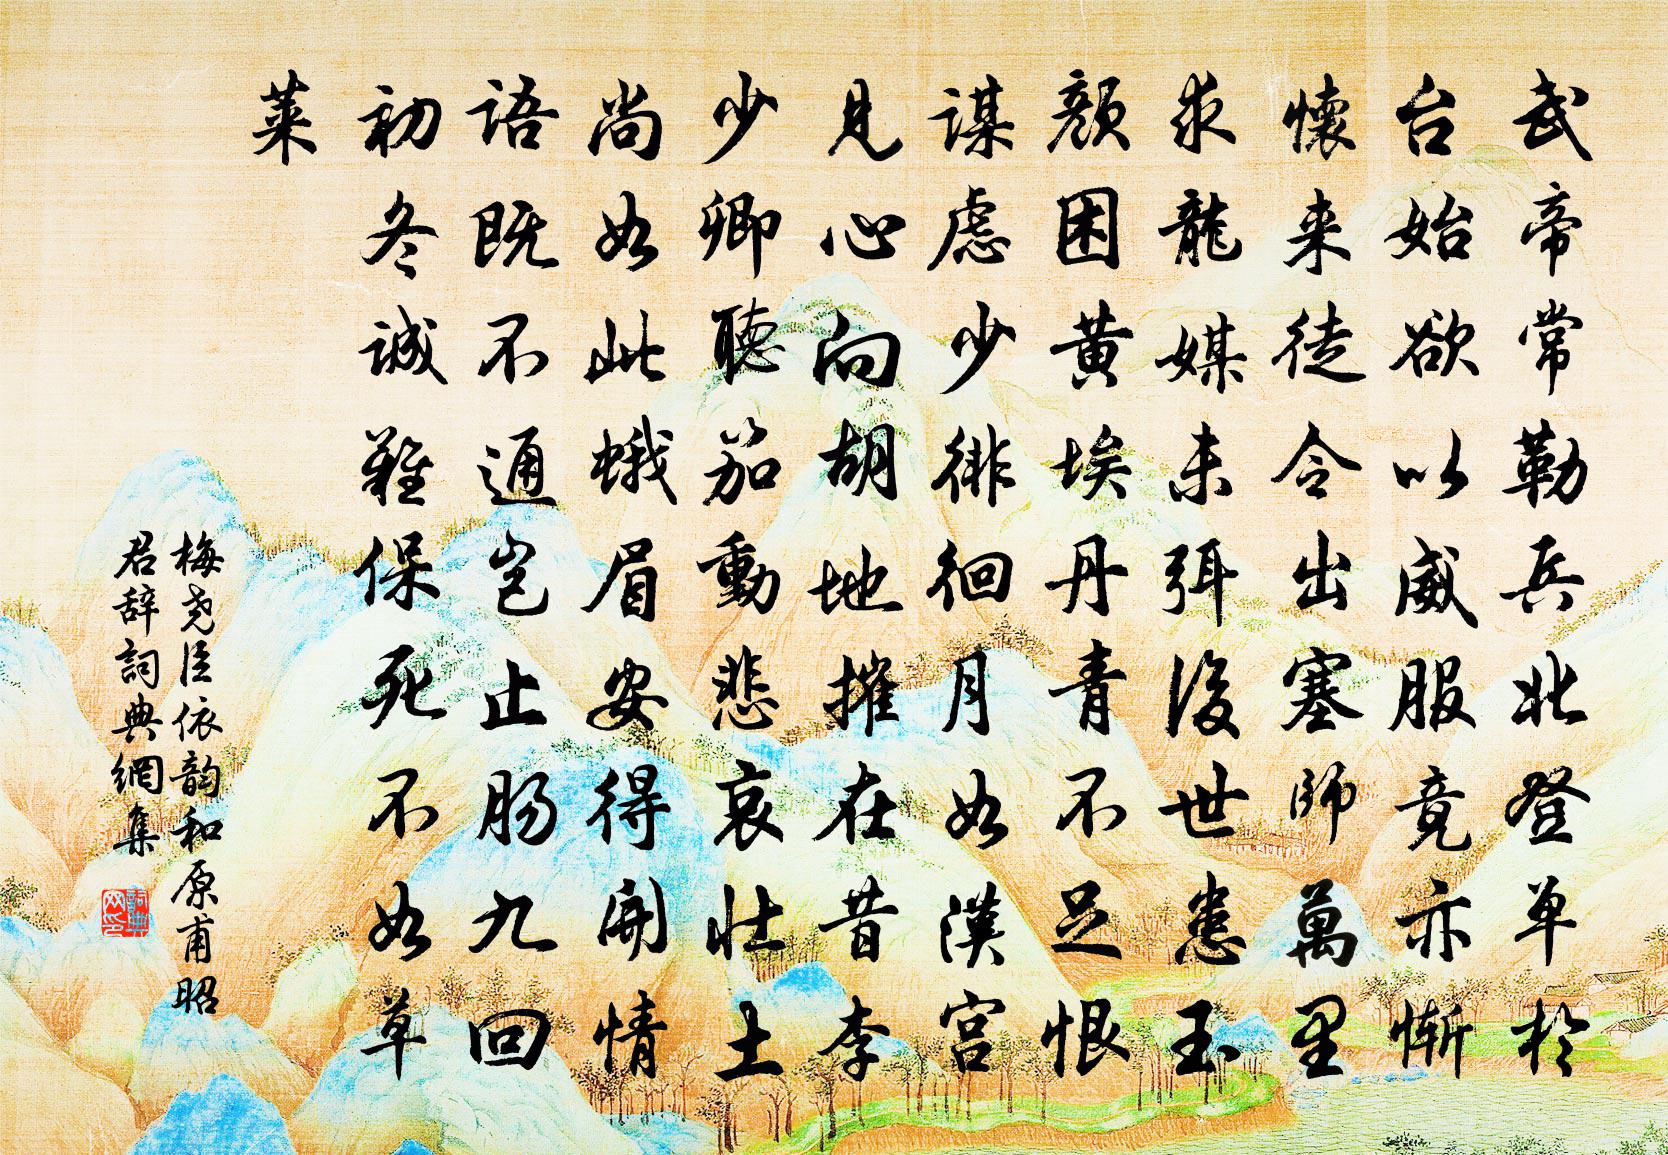 武帝常勒兵北登单於
台始欲以威服竟亦慚
懷来徒令出塞師萬里
求龍媒未弭後世患玉
颜困黄埃丹青不足恨
謀慮少徘徊月如漢宫
見心向胡地摧在昔李
少卿聽笳動悲哀壮士
尚如此蛾眉安得開情
語既不通岂止肠九回
初冬誠難保死不如草
莱
梅尧臣依韵和原甫昭
君辞詞典網集
詞典
网印